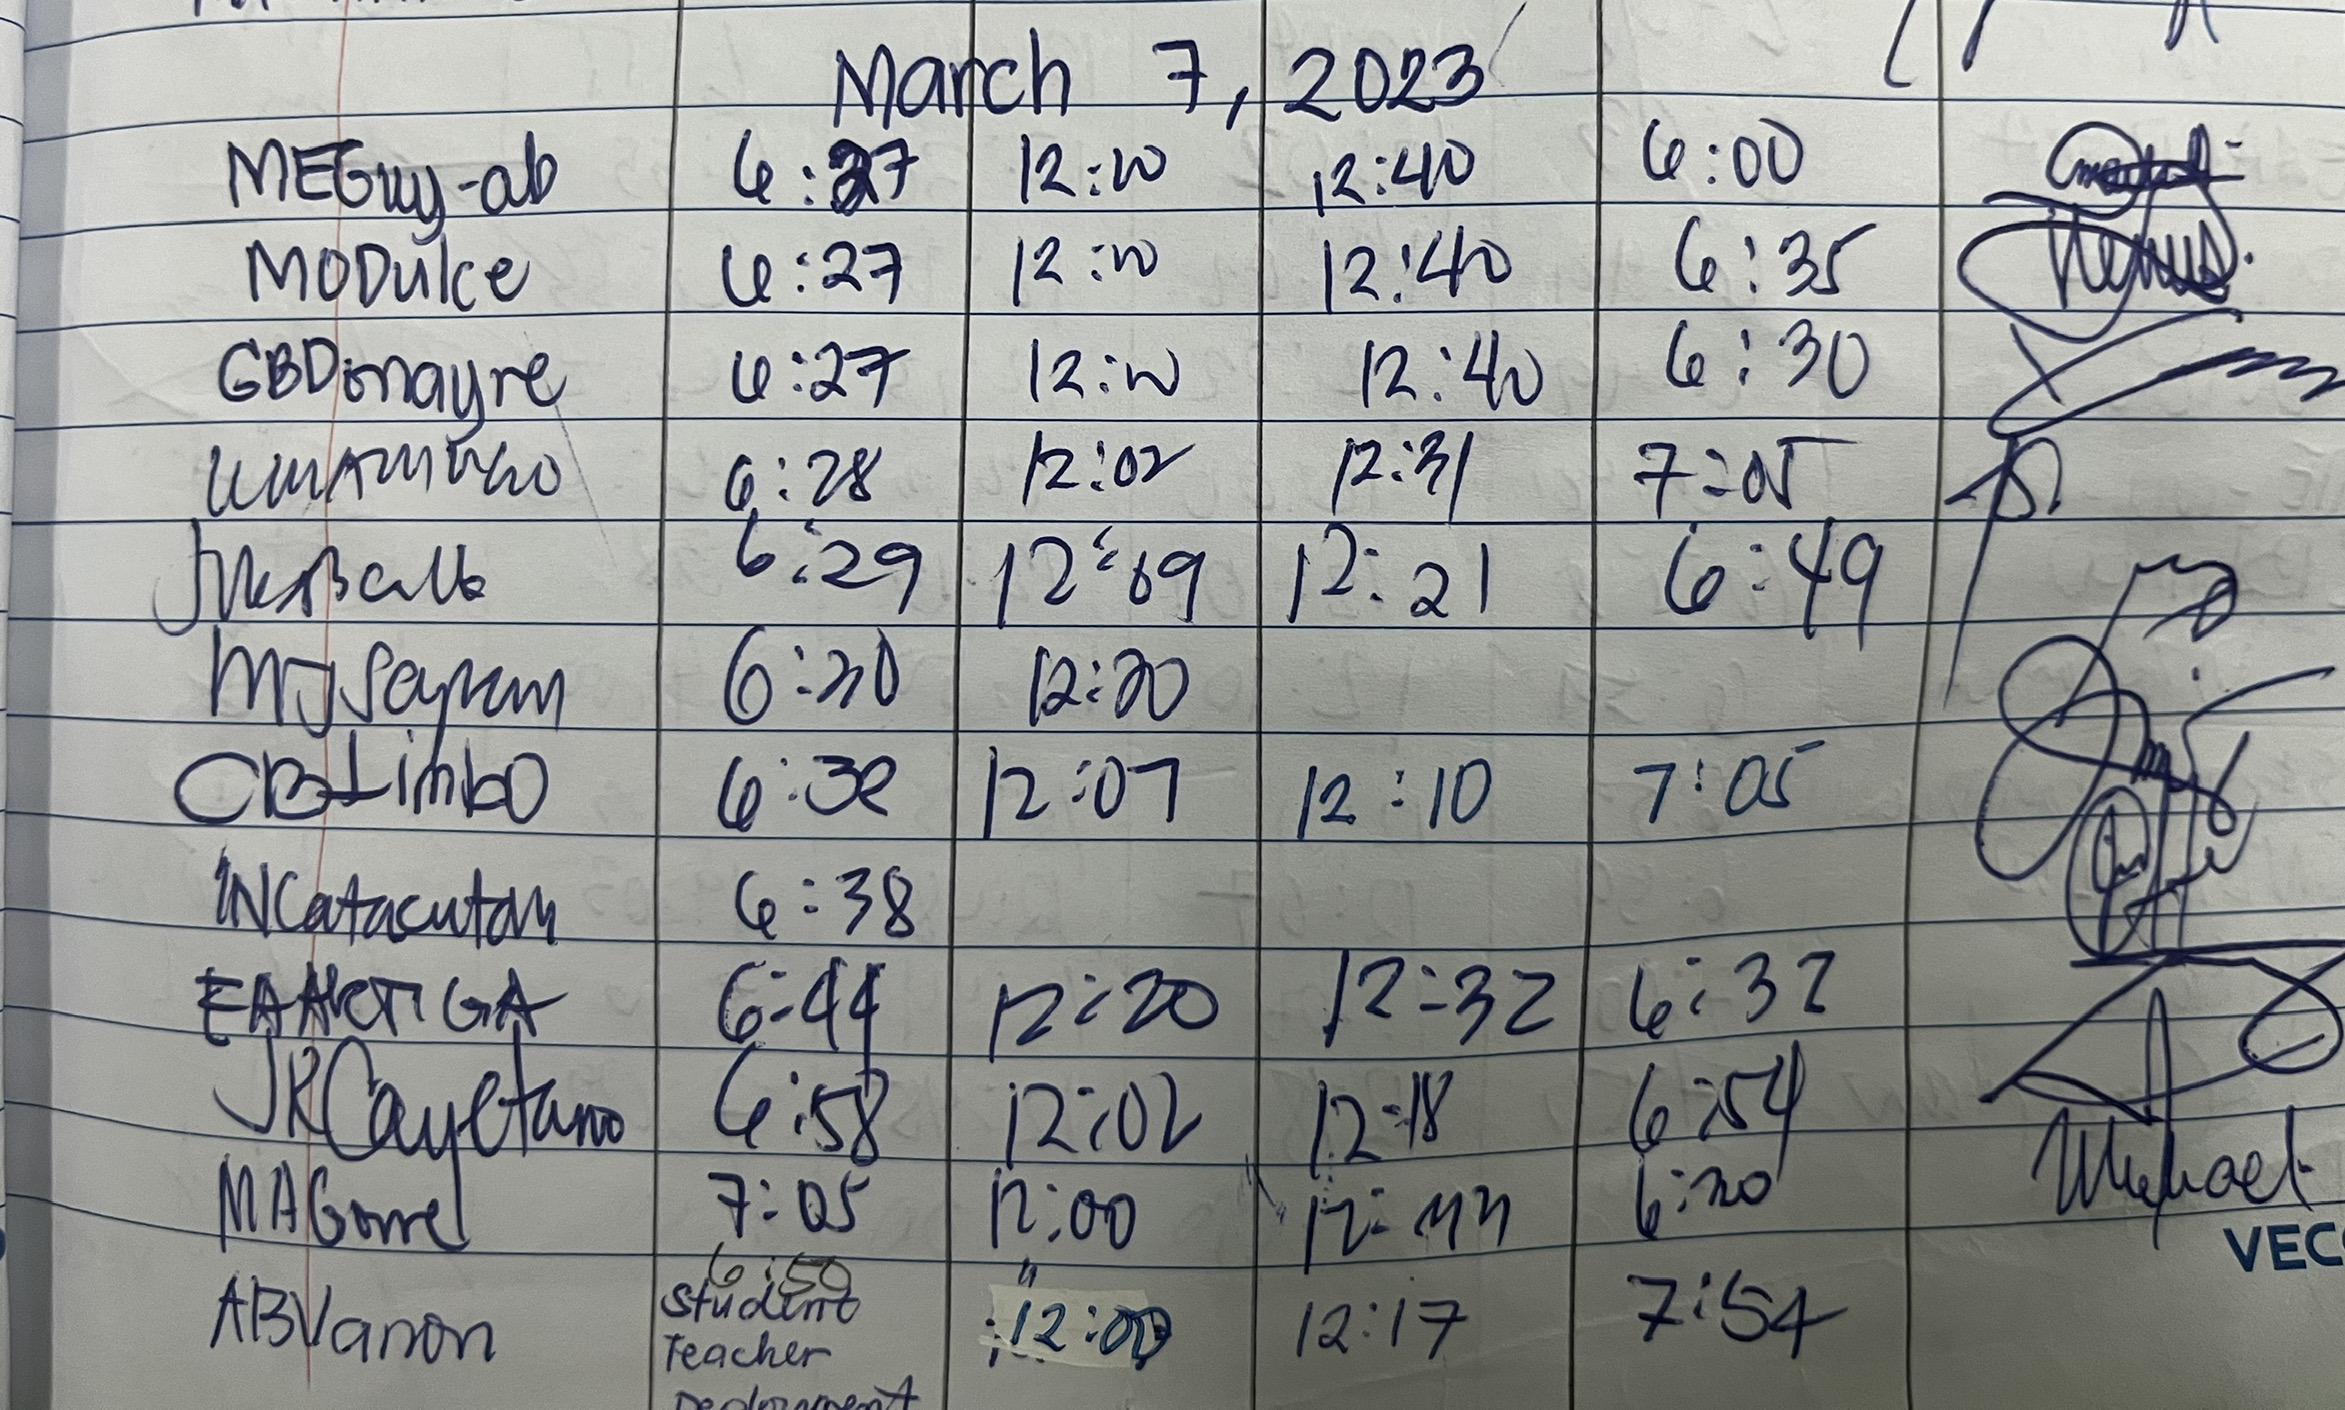 March 7, 2023
MEGuy-ab 6:27 12:10 12:40 6:00
MODulce 6:27 12:10 12:40 6:35
GBDonayre 6:27 12:10 12:40 6:30
6:28 12:02 12:31 7:05
6:29 12:09 12:21 6:49
6:30 12:20
CBLimbo 6:32 12:07 12:10 7:05
INCatacutan 6:38
EAARTIGA 6:44 12:20 12:32 6:32
JRCayetano 6:58 12:02 12:18 6:54
MAGorrel 7:05 12:00 12:44 6:20
6:50
ABVanon Student 12:00 12:17 7:54
Teacher
Deployment
VEC